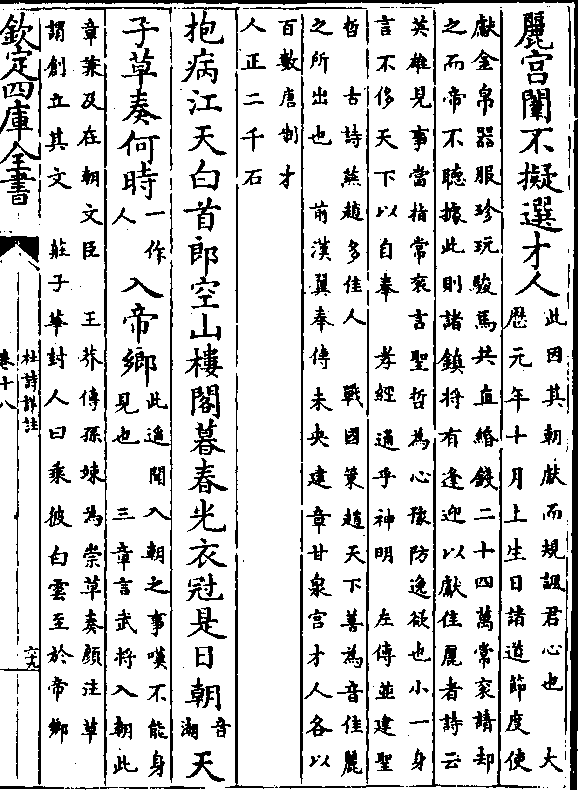 麗宫闈不擬選才人
此因其朝獻而規諷君心也 大
厯元年十月上生日諸道節度使
獻金帛器服珍玩駿馬共直緡錢二十四萬常衮請却
之而帝不聽據此則諸鎮將有逢迎以獻佳麗者詩云
英雄見事當指常衮言聖哲為心豫防逸欲也小一身
言不侈天下以自奉 孝經通乎神明 左傳並建聖
哲 古詩燕趙多佳人 戰國策趙天下善為音佳麗
之所出也 前漢翼奉傳未央建章甘泉宫才人各以
百數唐制才
人正二千石
抱病江天白首郎空山樓閣暮春光衣冠是日朝
音
潮
天
子草奏何時
一作
人
入帝鄉
此遥聞入朝之事嘆不能身
見也 三章言武將入朝此
章兼及在朝文臣 王莽傳孫竦為崇草奏顔注草
謂創立其文 莊子華封人曰乘彼白雲至於帝鄉
欽定四庫全書
杜詩詳註
卷十八